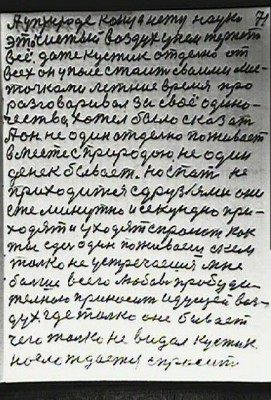 А у природе концу нету науко 71
это чистый воздух ужелтожит
всё даже кустик отделно от
всех он у поле стаит сваими лис
точками летние время про
разговаривал за своё одино
чества, хотел было сказат
А он не один отделно поживает
вместе с природою не один
денек бывает. но стат не
приходится с друзлями они
еже минутно и секундно при-
ходят и уходят спросят как
ты сдес один поживаеш скем
толко не устречаешя мне
болше всего любови прибуди-
телного приносит идущей воз-
дух где толко он не бывает
чего толко не видал кустик
наслаждается спросит